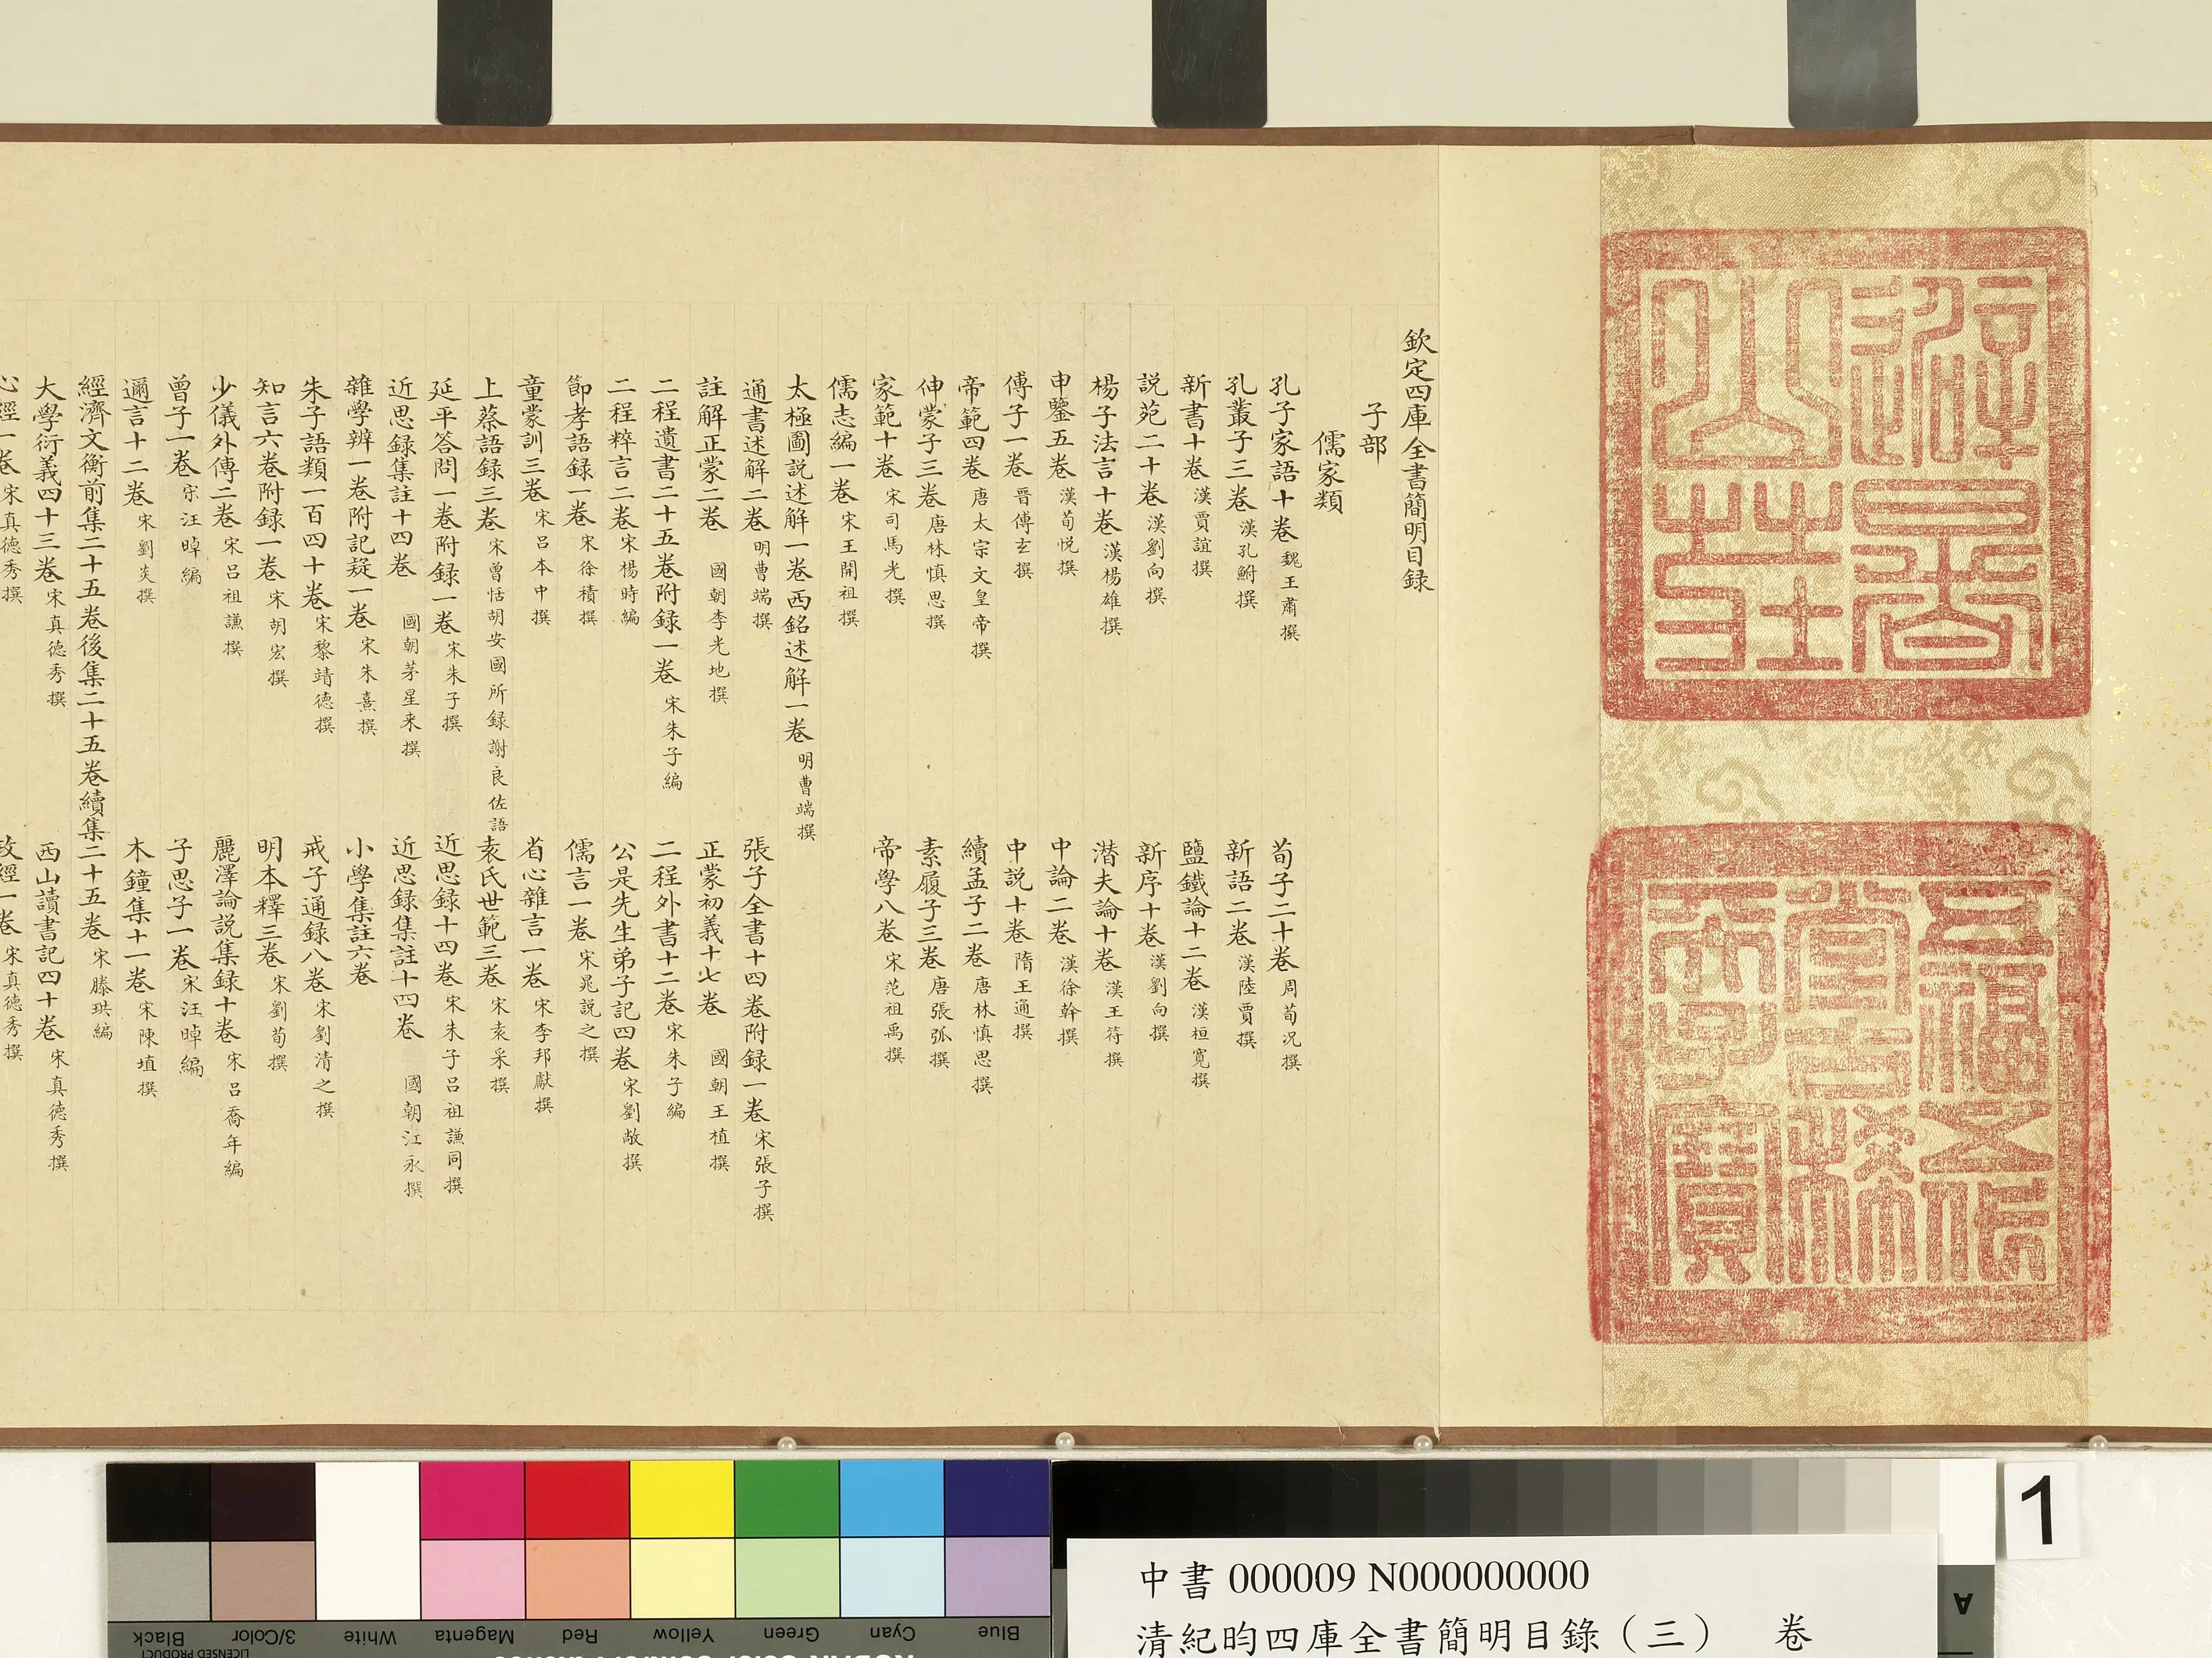 欽定四庫全書簡明目録
子部
儒家類
孔子家語十卷 魏王肅撰
荀子二十卷 周荀況撰
孔叢子三卷 漢孔鮒撰
新語二卷 漢陸賈撰
新書十卷 漢賈誼撰
鹽鐵論十二卷 漢桓寬撰
説苑二十卷 漢劉向撰
新序十卷 漢劉向撰
楊子法言十卷 漢楊雄撰
潜夫論十卷 漢王符撰
申鑒五卷 漢荀悦撰
中論二卷 漢徐幹撰
傅子一卷 晋傅玄撰
中説十卷 隋王通撰
帝範四卷 唐太宗文皇帝撰
續孟子二卷 唐林慎思撰
伸蒙子三卷 唐林慎思撰
素履子三卷 唐張弧撰
家範十卷 宋司馬光撰
帝學八卷 宋范祖禹撰
儒志編一卷 宋王開祖撰
太極圖説述解一卷西銘述解一卷 明曹端撰
通書述解二卷 明曹端撰
張子全書十四卷附録一卷 宋張子撰
註解正蒙二卷 國朝李光地撰
正蒙初義十七卷 國朝王植撰
二程遺書二十五卷附録一卷 宋朱子編
二程外書十二卷 宋朱子編
二程粹言二卷 宋楊時編
公是先生弟子記四卷 宋劉敞撰
節孝語録一卷 宋徐積撰
儒言一卷 宋晁説之撰
童蒙訓三卷 宋吕本中撰
省心雜言一卷 宋李邦獻撰
上蔡語録三卷 宋曾恬胡安國所録謝良佐語
袁氏世範三卷 宋袁采撰
延平答問一卷附録一卷 宋朱子撰
近思録十四卷 宋朱子吕祖謙同撰
近思録集註十四卷 國朝茅星来撰
近思録集註十四卷 國朝江永撰
雜學辨一卷附記疑一卷 宋朱熹撰
小學集註六卷
朱子語類一百四十卷 宋黎靖德撰
戒子通録八卷 宋劉清之撰
知言六卷附録一卷 宋胡宏撰
明本釋三卷 宋劉荀撰
少儀外傳二卷 宋吕祖謙撰
麗澤論説集録十卷 宋吕喬年編
曾子一卷 宋汪晫編
子思子一卷 宋汪晫編
邇言十二卷 宋劉炎撰
木鐘集十一卷 宋陳埴撰
經濟文衡前集二十五卷後集二十五卷續集二十五卷 宋滕珙編
大學衍義四十三卷 宋真德秀撰
西山讀書記四十卷 宋真德秀撰
心經一卷 宋真德秀撰
政經一卷 宋真德秀撰
避暑山莊
五福五代堂古稀天子寶
Black
3/Color
White
Magenta
Red
Yellow
Green
Cyan
Blue
LICENSED PRODUCT
A
1
中書 000009 N000000000
清紀昀四庫全書簡明目錄（三） 卷